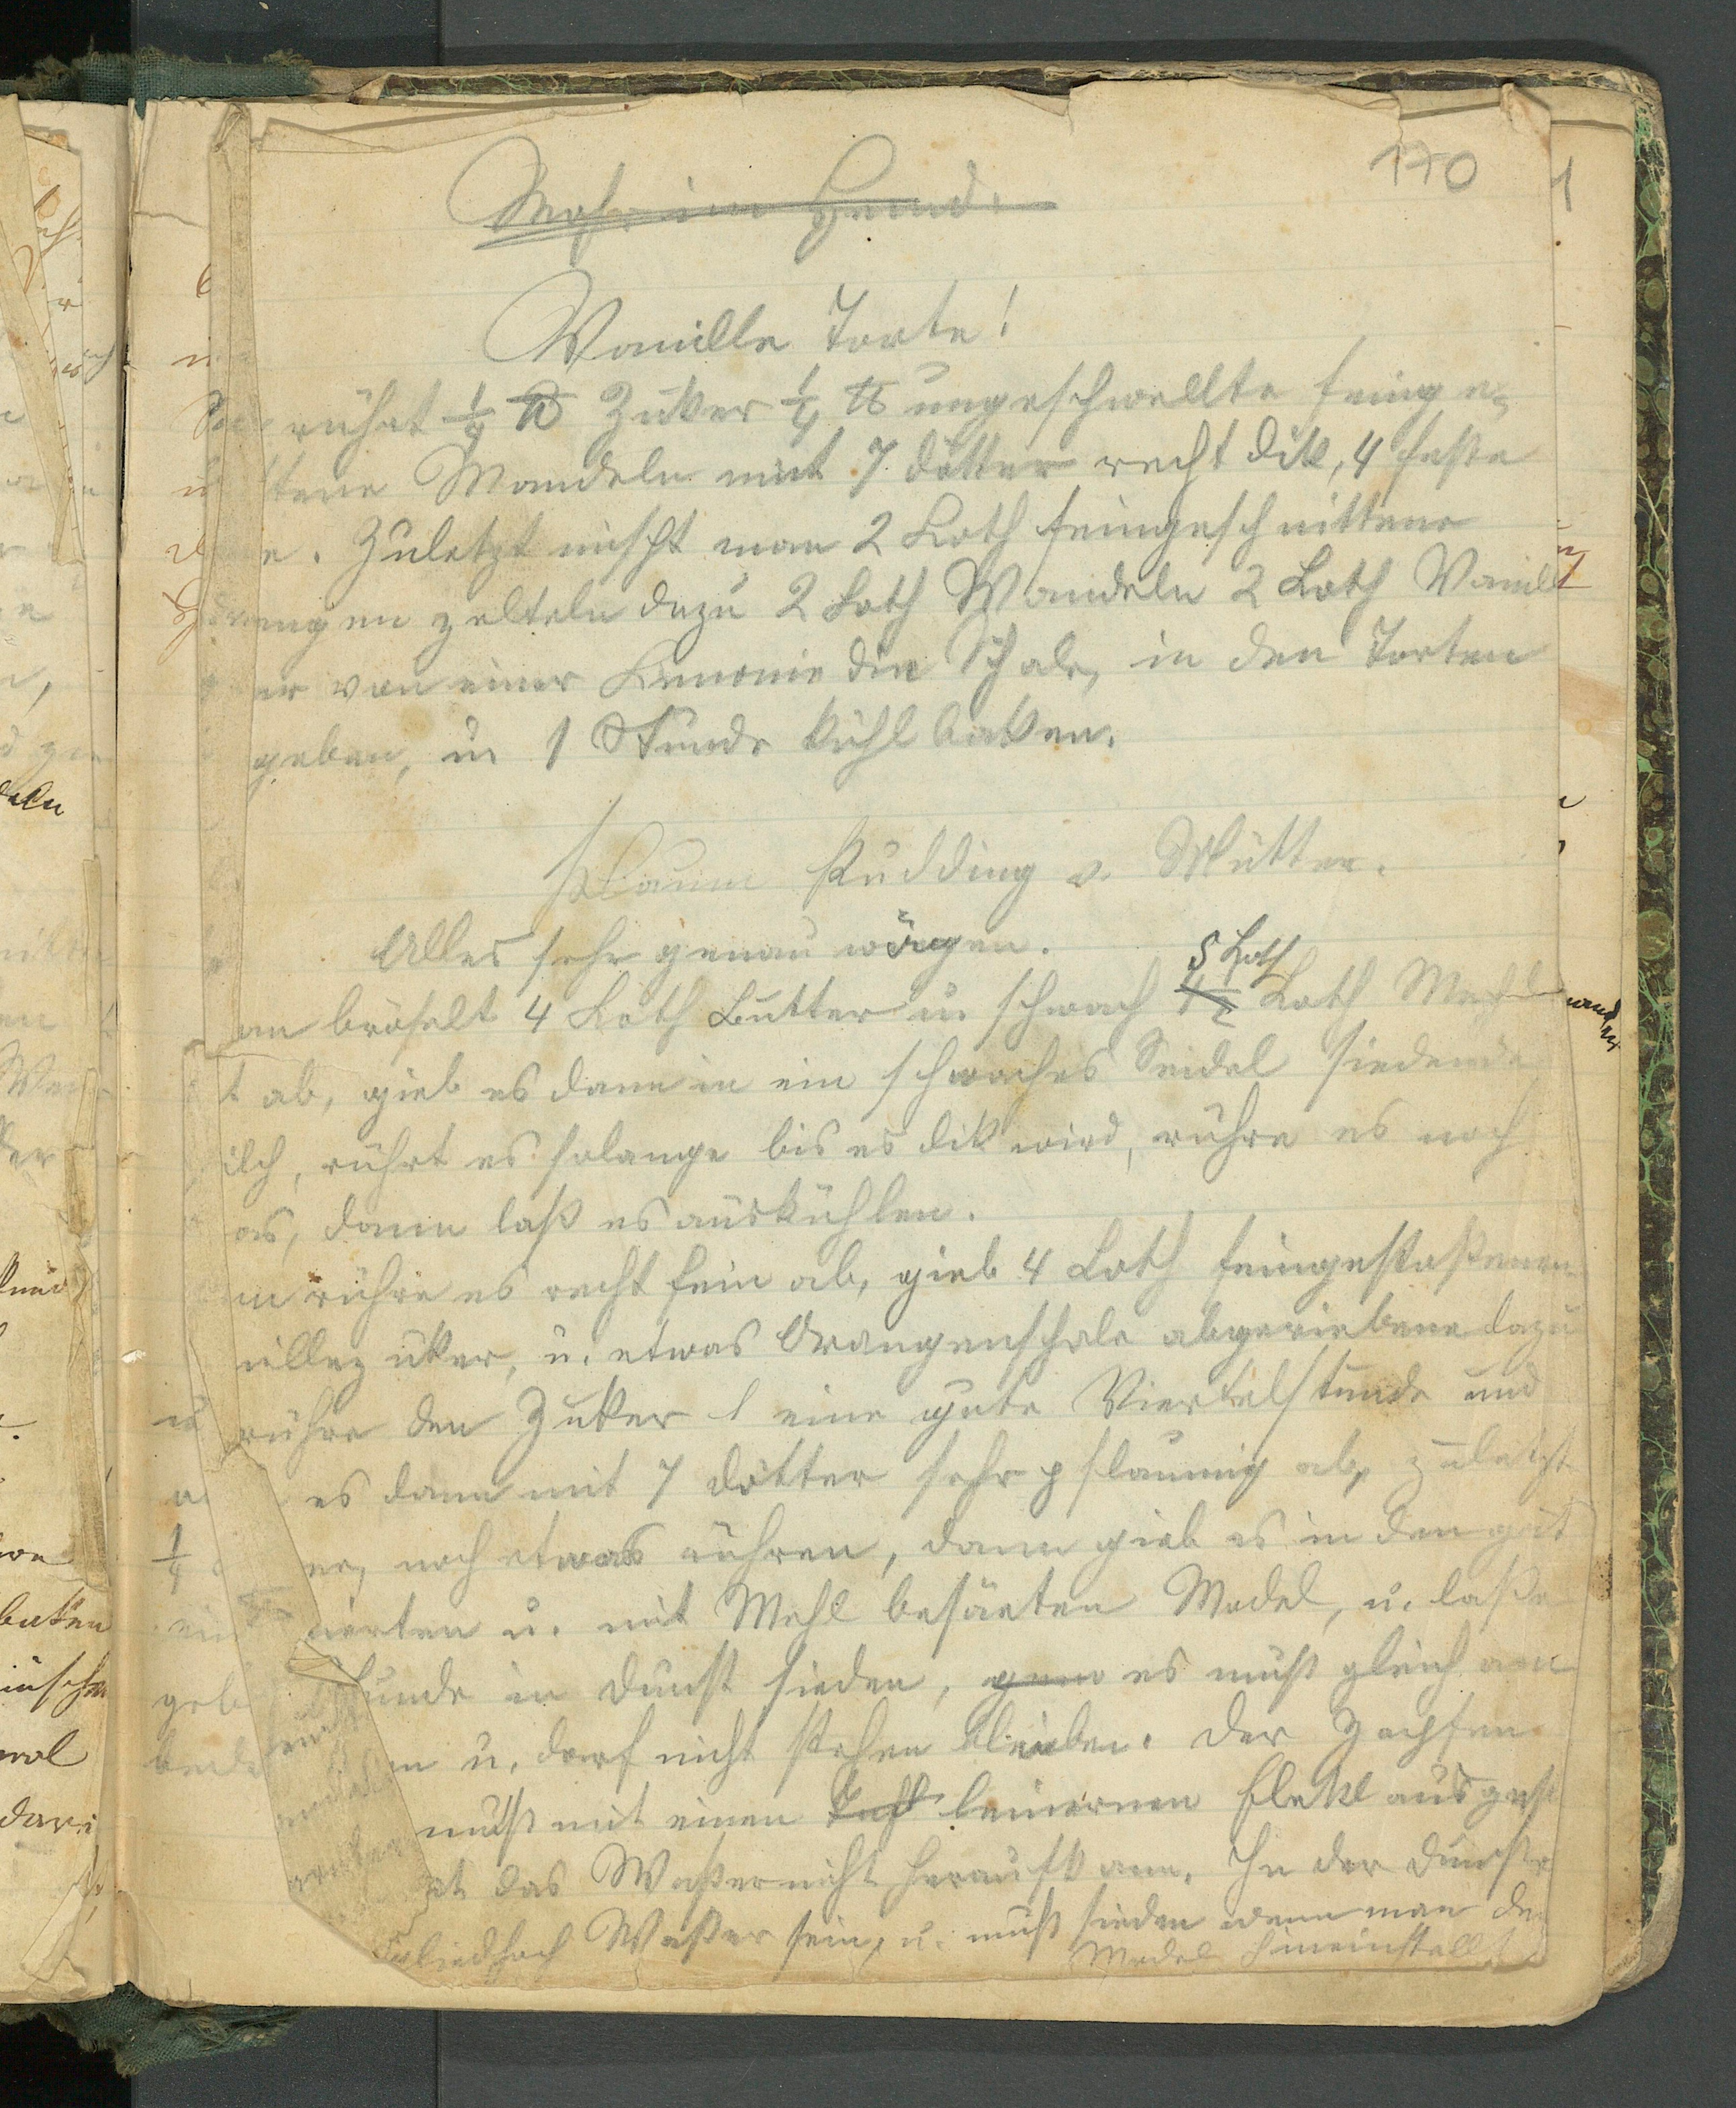 170
Mohr im Hemd.
Vanille Torte!
rührt 1/4 ℔ Zuker 1/4 ℔ ungeschwellte feinge=
stene Mandeln mit 7 Dötter recht dik, 4 feste
e. Zuletzt mischt man 2 Loth feingeschnittene
rangen zelteln dazu 2 Loth Mandeln 2 Loth Vanill
er von einer Limonie die Schale, in den Torten
geben, u. 1 Stunde kühl baken.
Plaum Pudding v. Mutter.
Alles sehr genau wägen.
5 Loth
an bröselt 4 Loth Butter u. schwach Loth Mehl
t ab, gieb es dann in ein schwaches Seidel siedende
ilch, rührt es solange bis es dik wird, rühre es noch
as, dann laß es auskühlen.
nn rühre es recht fein ab, gieb 4 Loth feingestoßenen
nillezuker, u. etwas Orangenschale abgeriebene dazu
rühre den Zuker eine gute Viertelstunde und
es dann mit 7 Dötter sehr pflaumig ab, zuletzt
noch etwas rühren, dann gieb es in den gut
ierten u. mit Mehl besäeten Model, u. laße
tunde in Dunst sieden, es muß gleich
n u. darf nicht stehen bleiben. Der Zapfen
muß mit einen leinernen Flekl ausgest
das Waßer nicht herauf kann. In der Dunst
gliedhoch Waßer sein, u. muß sieden wenn man den
Model hineinstellt